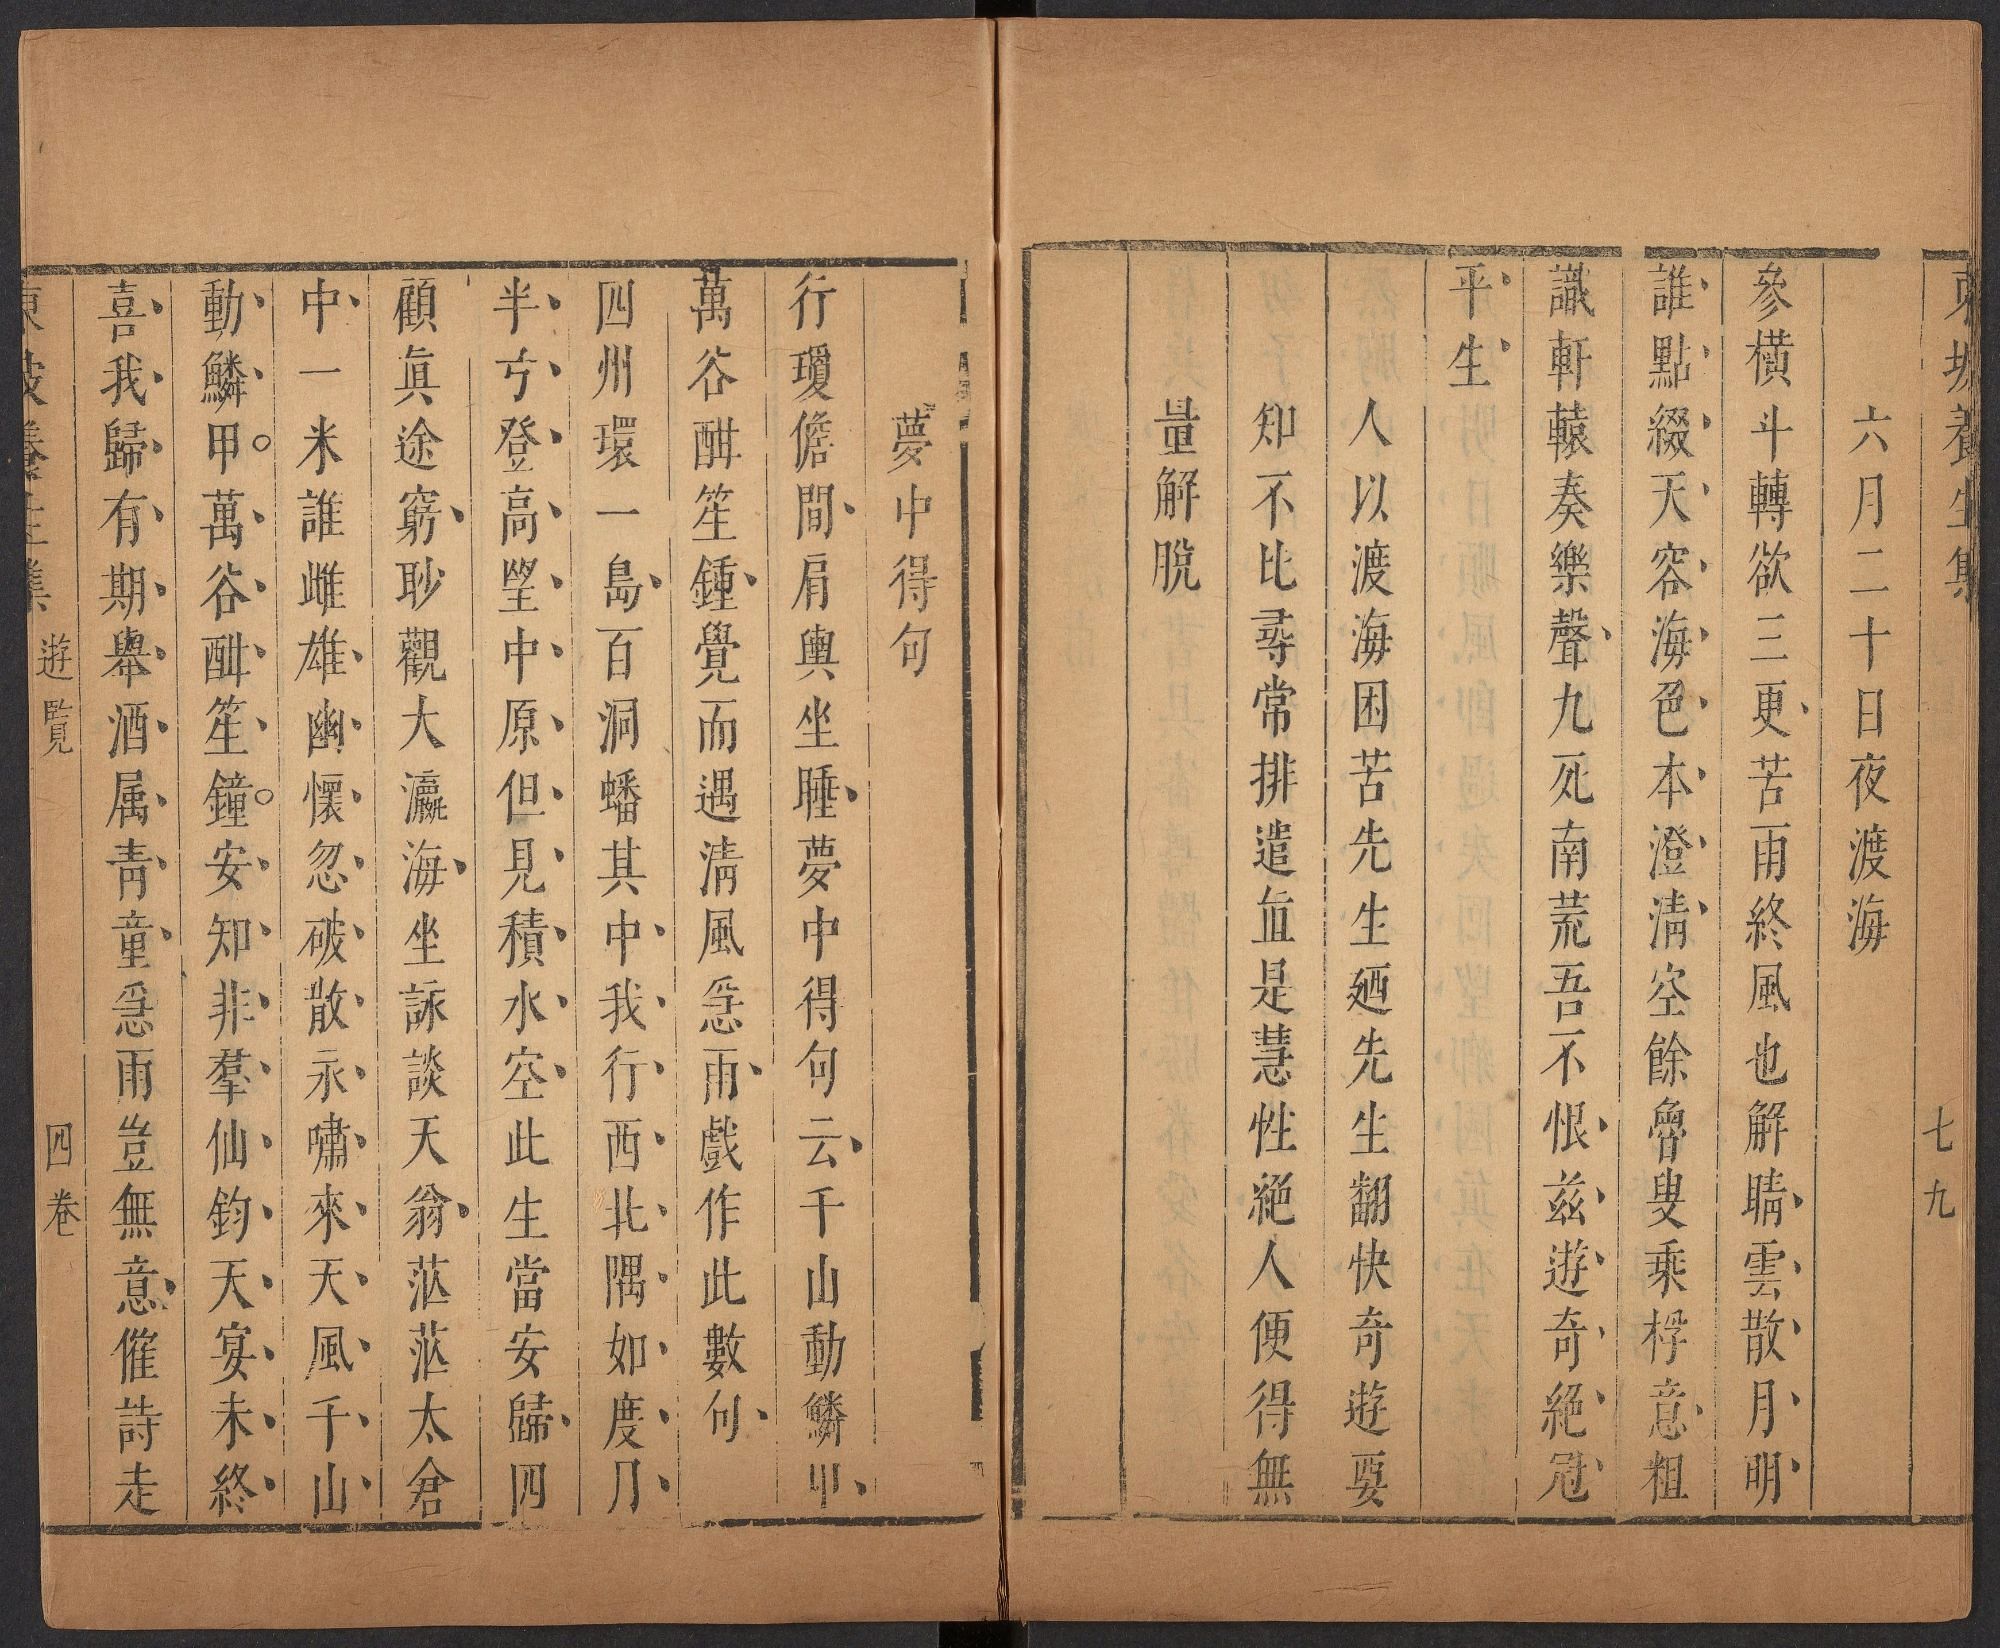 東坡養生集
七九
六月二十日夜渡海
參橫斗轉欲三更苦雨終風也解晴雲散月明
誰點綴天容海色本澄清空餘魯叟乘桴意粗
識軒轅奏樂聲九死南荒吾不恨茲遊奇絕冠
平生
人以渡海困苦先生廼先生翻快奇遊要
知不比尋常排遣血是慧性絕人便得無
量解脫
夢中得句
行瓊儋間肩輿坐睡夢中得句云千山動鱗甲
萬谷酣笙鍾覺而遇清風急雨戲作此數句
四州環一島百洞蟠其中我行西北隅如度月
半弓登高望中原但見積水空此生當安歸四
顧眞途窮眇觀大瀛海坐詠談天翁茫茫太倉
中一米誰雌雄幽懷忽破散永嘯來天風千山
動鱗甲萬谷酣笙鐘安知非羣仙鈞天宴未終
喜我歸有期舉酒属青童急雨豈無意催詩走
東坡養生集
遊覽
四卷